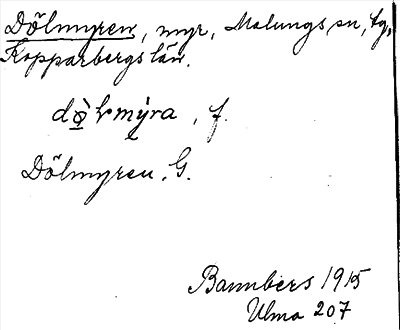 Dölmyren, myr, Malungs sn, tg,
Kopparbergs län.
myra, f.
Dölmyren. G.
Bannbers 1915
Ulma 207